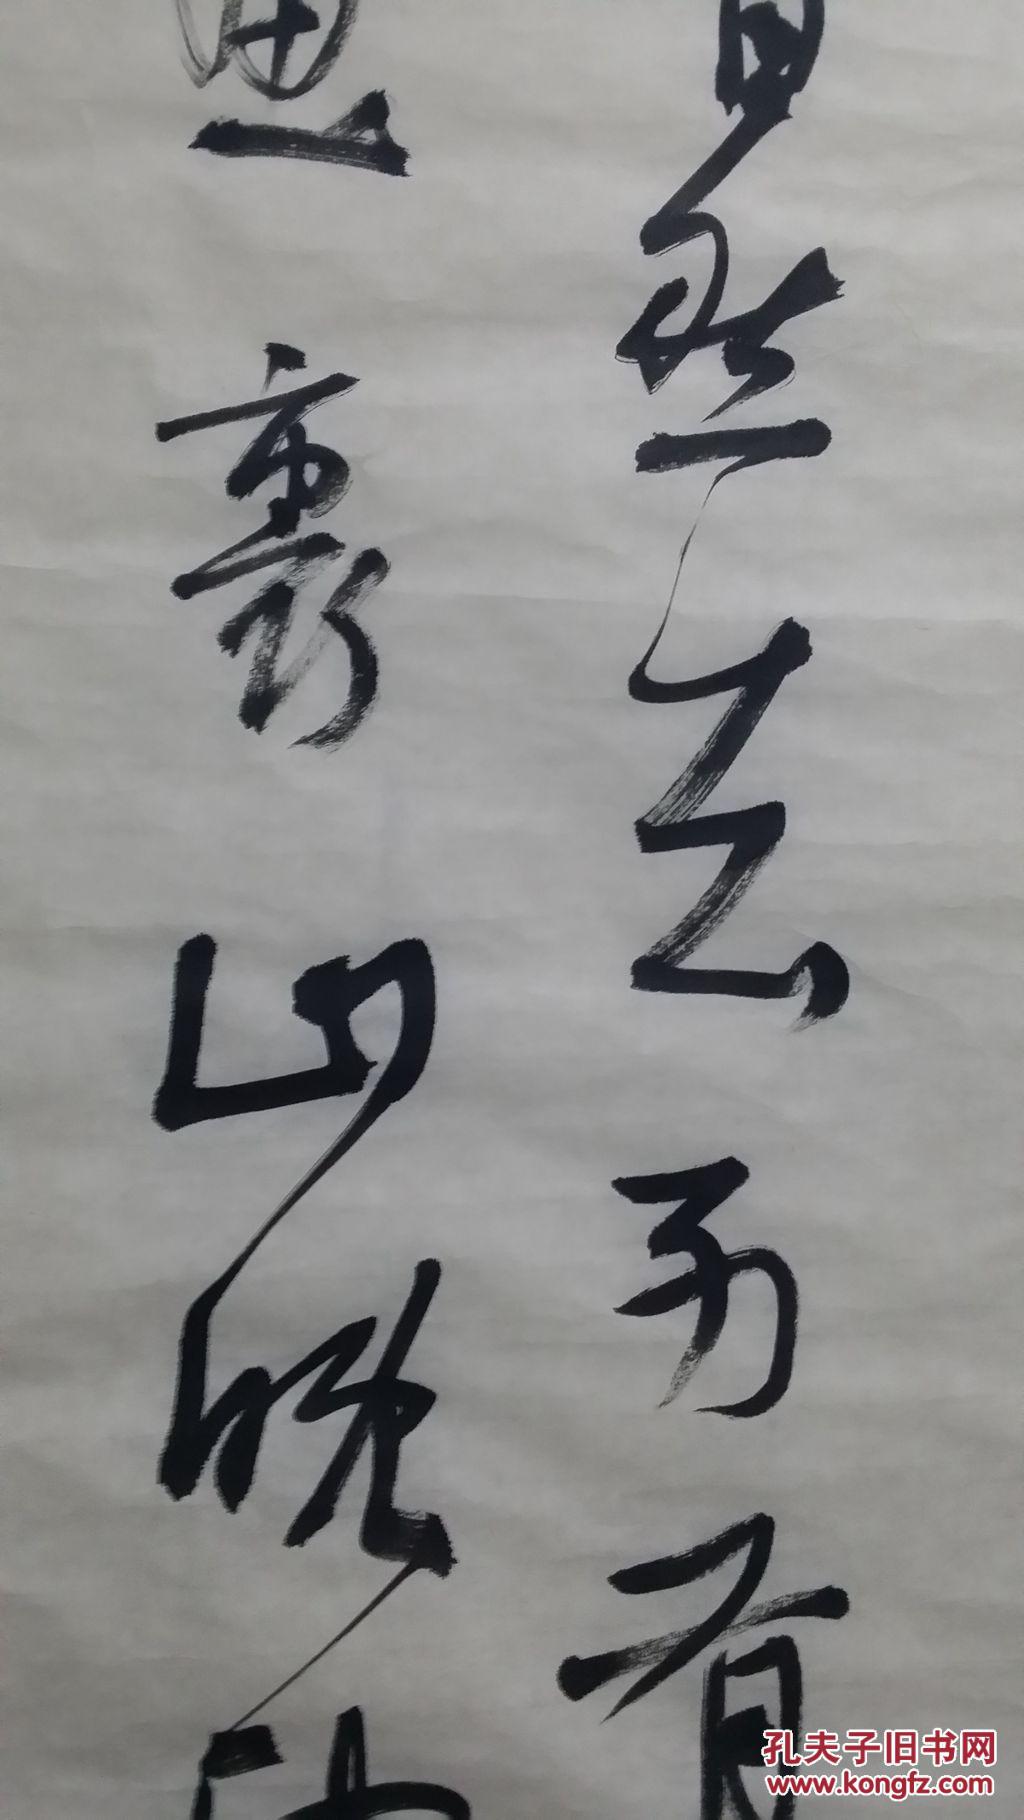 然去别有
畫裏山晚
孔夫子旧书网
www.kongfz.com